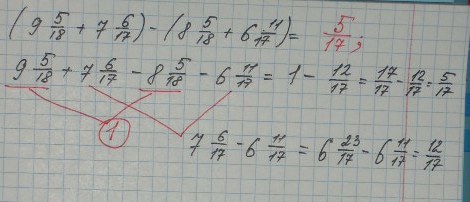 (9 5/18 + 7 6/17) - (8 5/18 + 6 11/17) = 5/17;
9 5/18 + 7 6/17 - 8 5/18 - 6 11/17 = 1 - 12/17 = 17/17 - 12/17 = 5/17
1
7 6/17 - 6 11/17 = 6 23/17 - 6 11/17 = 12/17